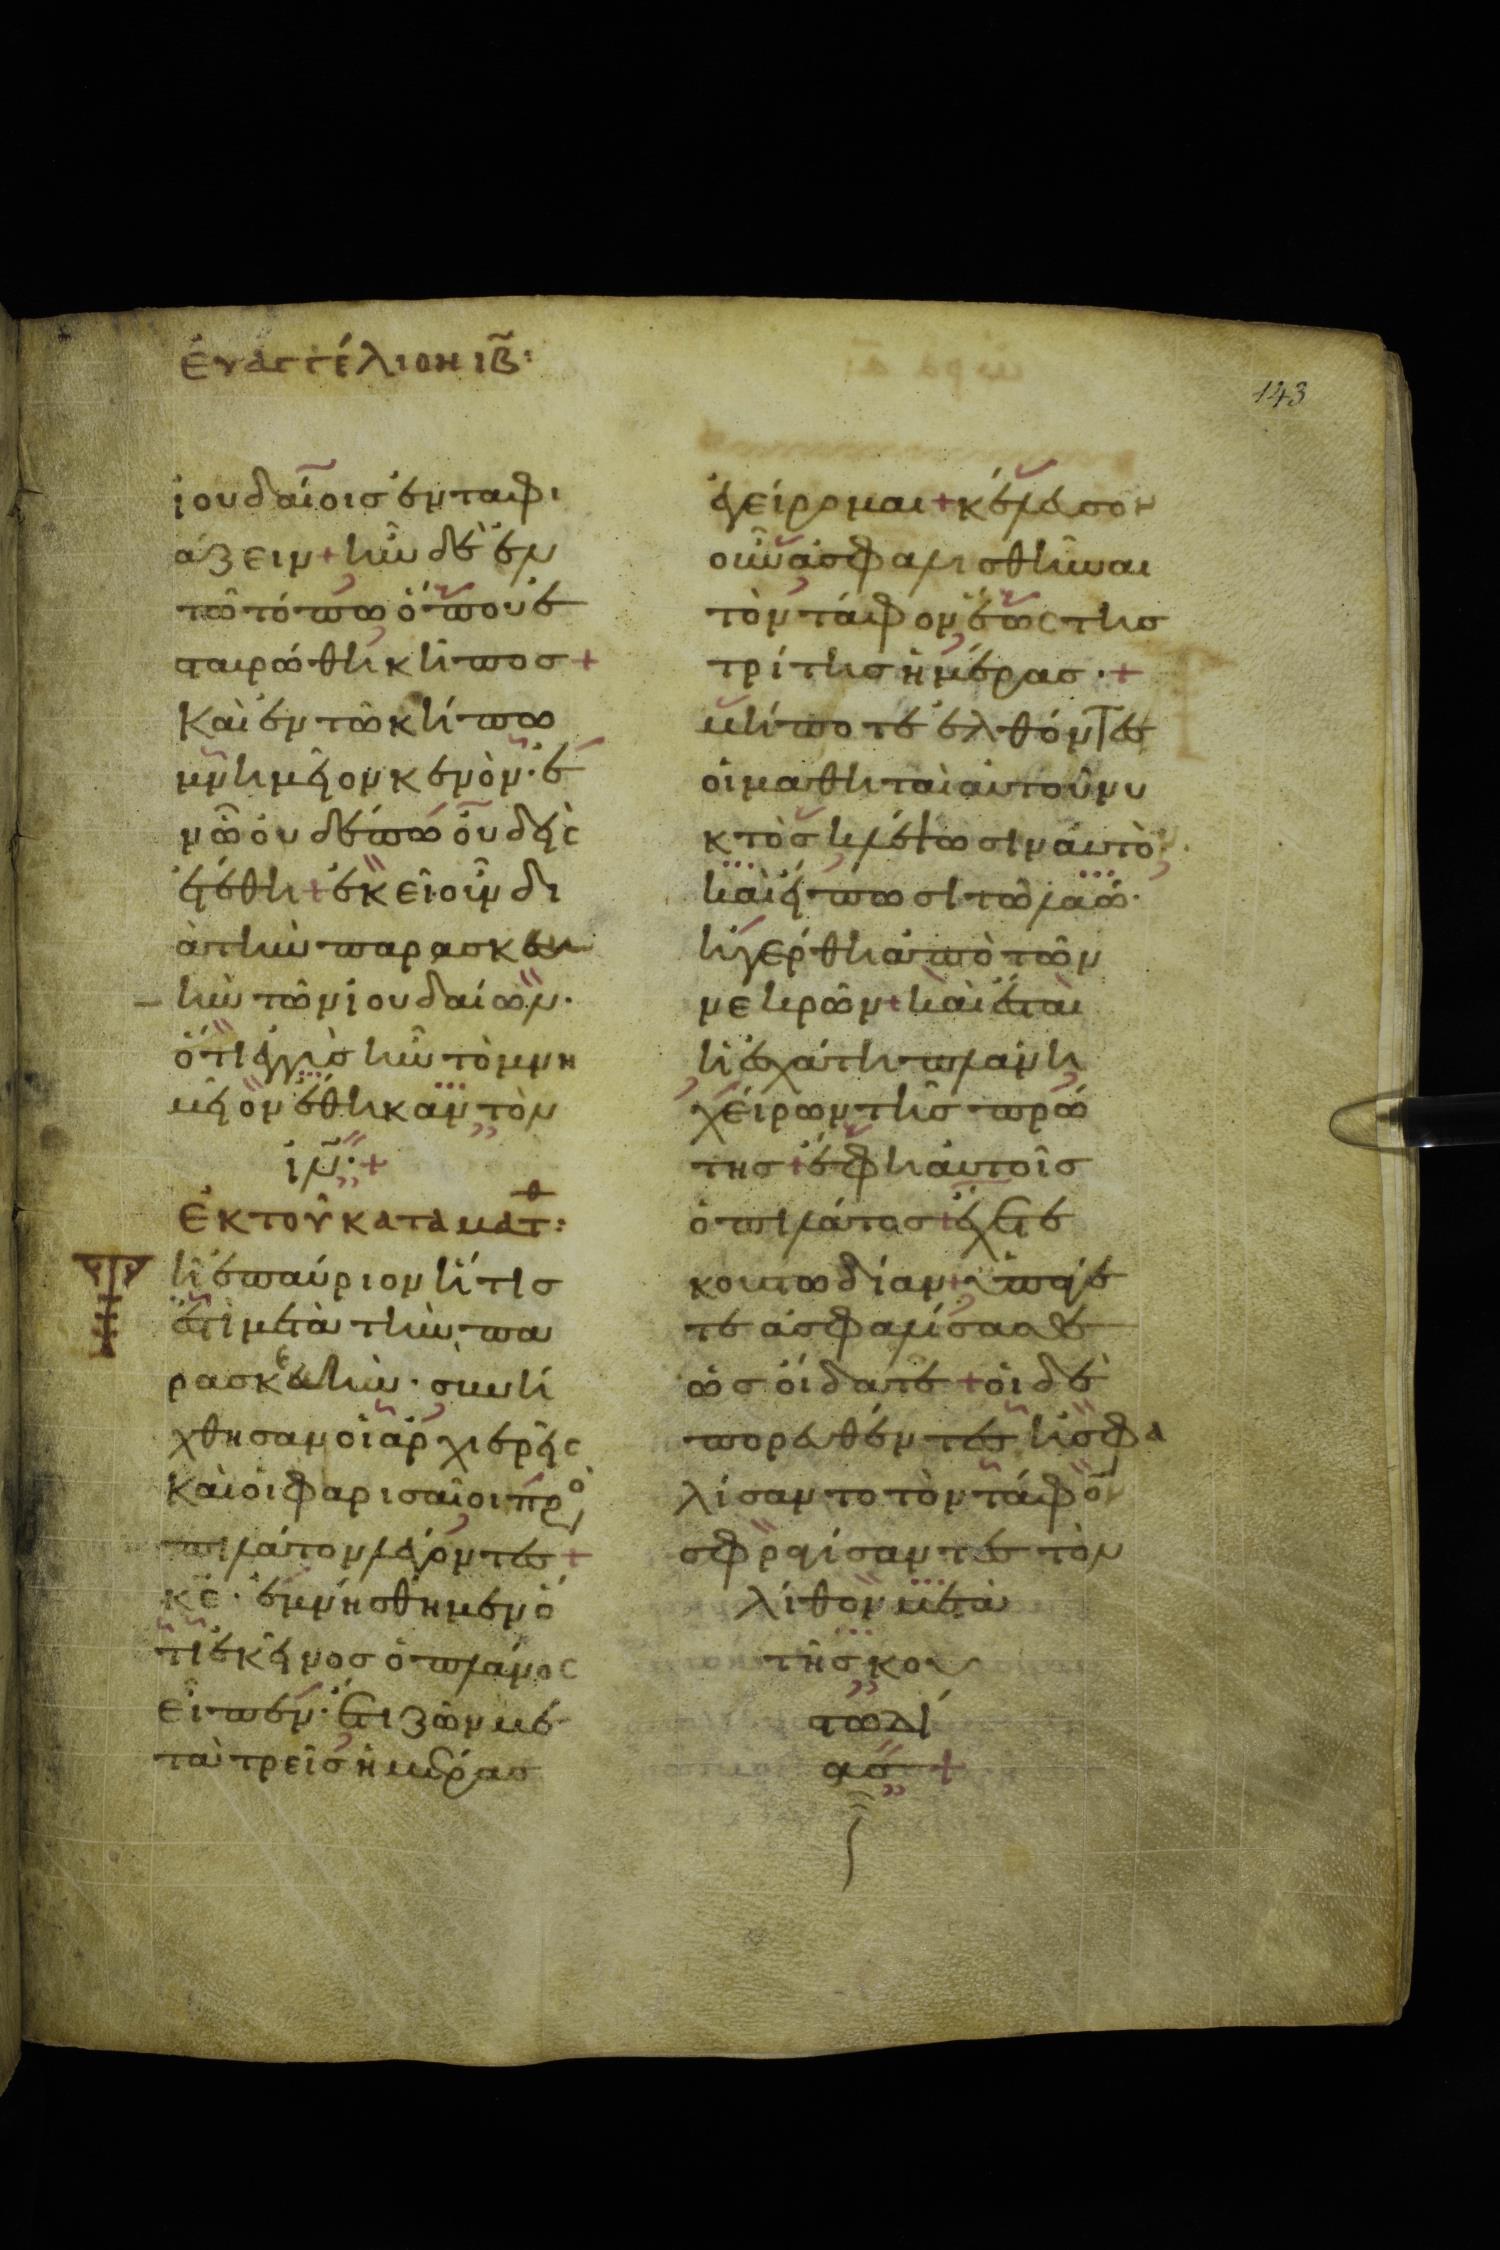 ἐυαγγέλιον ιβ̃:
143
ἰουδαίοις ἐνταφι
άζειν + ἦν δὲ ἐν
τῶ τόπω ὅπου ἐ
σταυρώθη κῆπος +
Καὶ ἐν τῶ κήπω
μνημεῖον κενὸν· ἐ
ν ὧ οὐδέπω οὐδεὶς
ἐτέθη + ἐκεῖ οὖν δι
ὰ τὴν παρασκευ
ὴν τῶν ἰουδαίων.
ὅτι ἐγγὺς ἦν τὸ μνη
μεῖον ἔθηκαν τὸν
ἰν̃· +
Ἐκ τοῦ κατα ματθ:
Τῆ ἐπαύριον ἥτις
ἐστὶ μετὰ τὴν πα
ρασκευὴν. συνή
χθησαν οἱ ἀρχιερεῖς
Καὶ οἱ φαρισαῖοι πρὸ
πιλάτον λέγοντες +
κε̃. ἐμνήσθημεν ὅ
τι ἐκεῖνος ὁ πλάνος
εἶπεν. ἔτι ζῶν με
τὰ τρεῖς ἡμέρας
ἐγείρομαι + κέλευσον
οὖν ἀσφαλισθῆναι
τὸν τάφον ἕως τῆς
τρίτης ἡμέρας. +
μήποτε ἐλθόντες
οἱ μαθηταὶ αὐτοῦ νυ
κτὸς κλέψωσιν αὐτὸν.
καὶ εἴπωσι τῶ λαῶ.
ἠγέρθη ἀπὸ τῶν
νεκρῶν + καὶ ἔσται
ἡ ἐσχάτη πλάνη
χείρων τῆς πρώ
της + ἔφη αὐτοῖς
ὁ πιλάτος + ἔχετε
κουστωδίαν + ὑπάγε
τε ἀσφαλίσασθε
ὡς οἴδατε + οἱ δὲ
πορευθέντες ἠσφα
λίσαντο τὸν τάφον
σφραγίσαντες τὸν
λίθον μετὰ
τῆς κου
στωδί
ας +